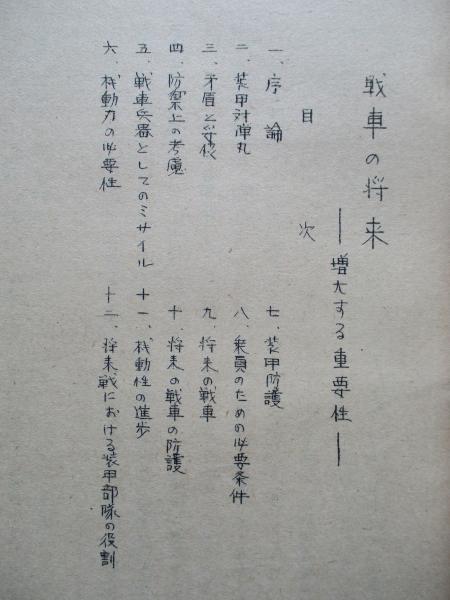 戦車の将来
――増大する重要性――
目次
一、序論
二、装甲対弾丸
三、矛盾と妥協
四、防禦上の考慮
五、戦車兵器としてのミサイル
六、機動力の必要性
七、装甲防護
八、乗員のための必要条件
九、将来の戦車
十、将来の戦車の防護
十一、機動性の進歩
十二、将来戦における装甲部隊の役割